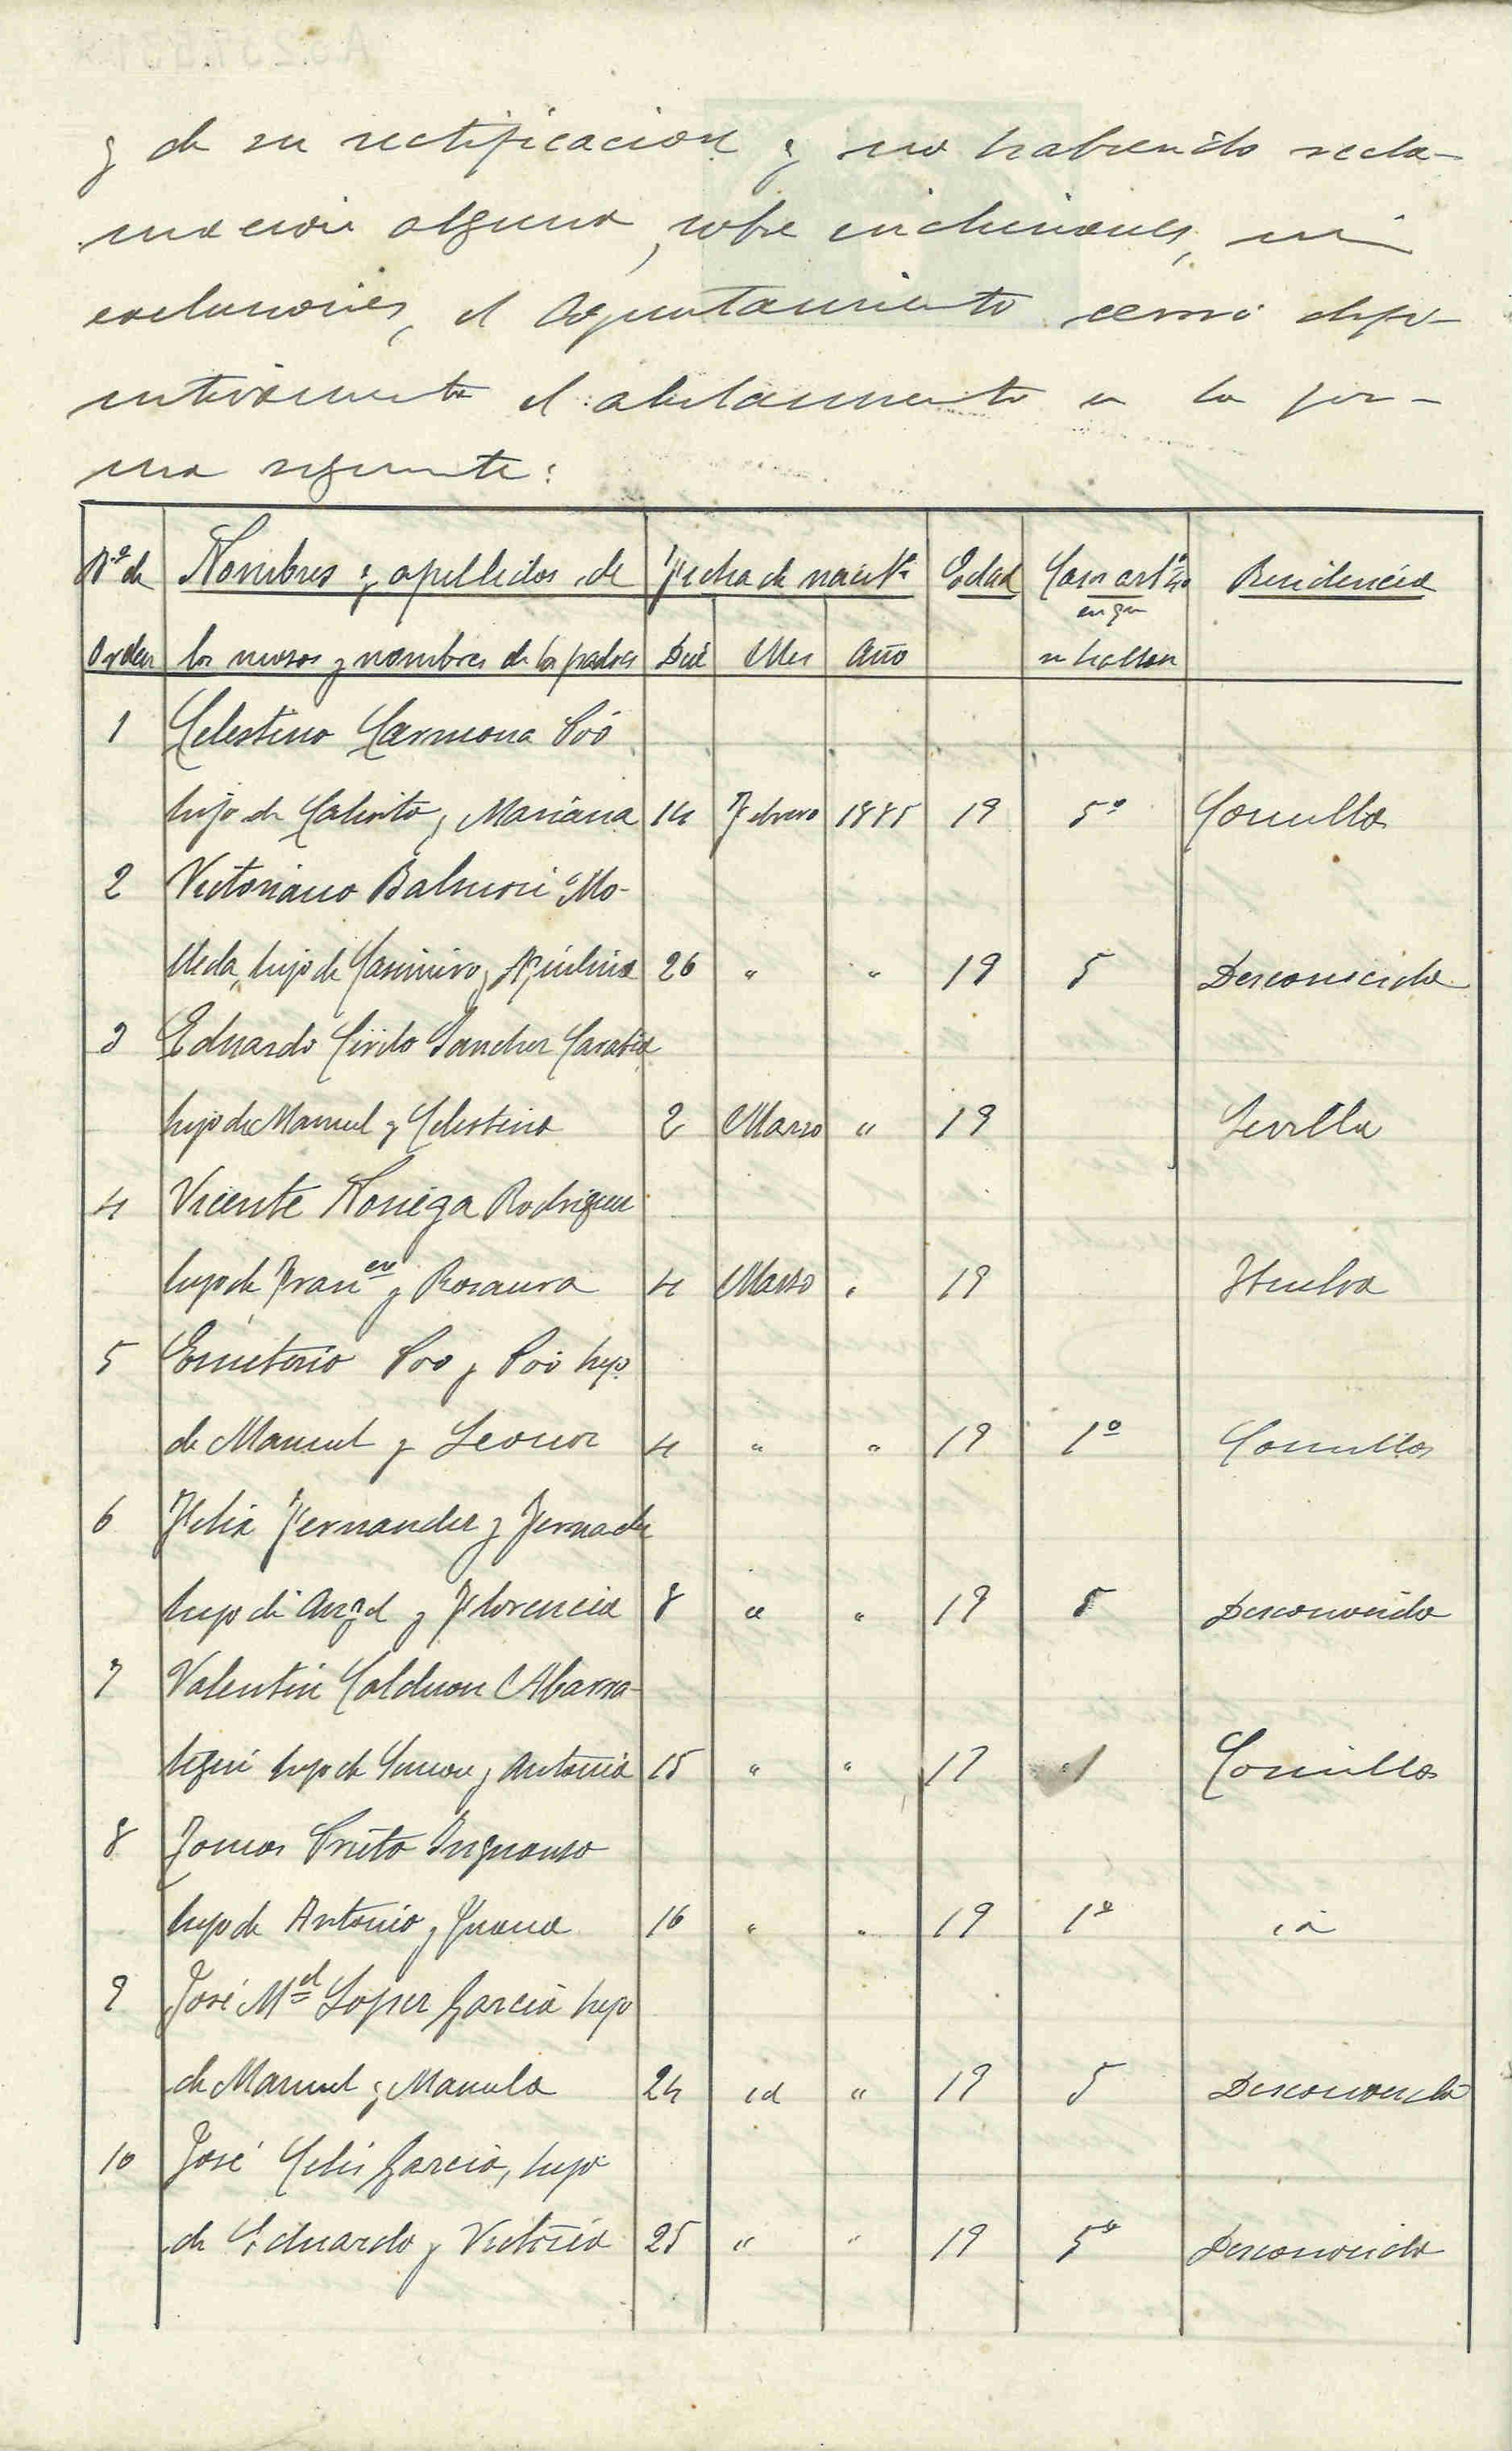 y de su rectificacion y no habiendo recla-
macion alguna, sobre inclusiones, ni
exclusiones, el Ayuntamiento cerró defi-
nitivamente el alistamiento en la for-
ma siguente:
Nº de Nombres y apellidos de Fecha de nacimto Edad Caso artº 40 Residencia
en qu
Orden los mozos y nombres de los padres Dia Mes Año se hallan
1 Celestino Carmona Poó
hijo de Calisto y Mariana 14 Febrero 1885 19 5º Comillas
2 Victoriano Balmori Mo-
lleda, hijo de Casimiro y Aquilina 26 " " 19 5 Desconocida
3 Eduardo Cirilo Sanchez Carabia
hijo de Manuel y Celestina 2 Marzo " 19 Sevilla
4 Vicente Noriega Rodriguez
hijo de Franco y Rosaura 4 Marzo " 19 Huelva
5 Emeterio Poo y Poó hijo
de Manuel y Leonor 4 " " 19 1º Comillas
6 Felix Fernandez y Fernadez
hijo de Angel y Florencia 8 " " 19 5 Desconocida
7 Valentin Calderon Abarra-
tegui hijo de Simon y Antonia 15 " " 19 1 Comillas
8 Tomas Prieto Inguanzo
hijo de Antonio y Juana 16 " " 19 1º id
9 José Mel Lopez Garcia hijo
de Manuel y Manuela 24 id " 19 5 Desconocida
10 José Celis Garcia, hijo
de Eduardo y Victoria 25 " " 19 5º Desconocida